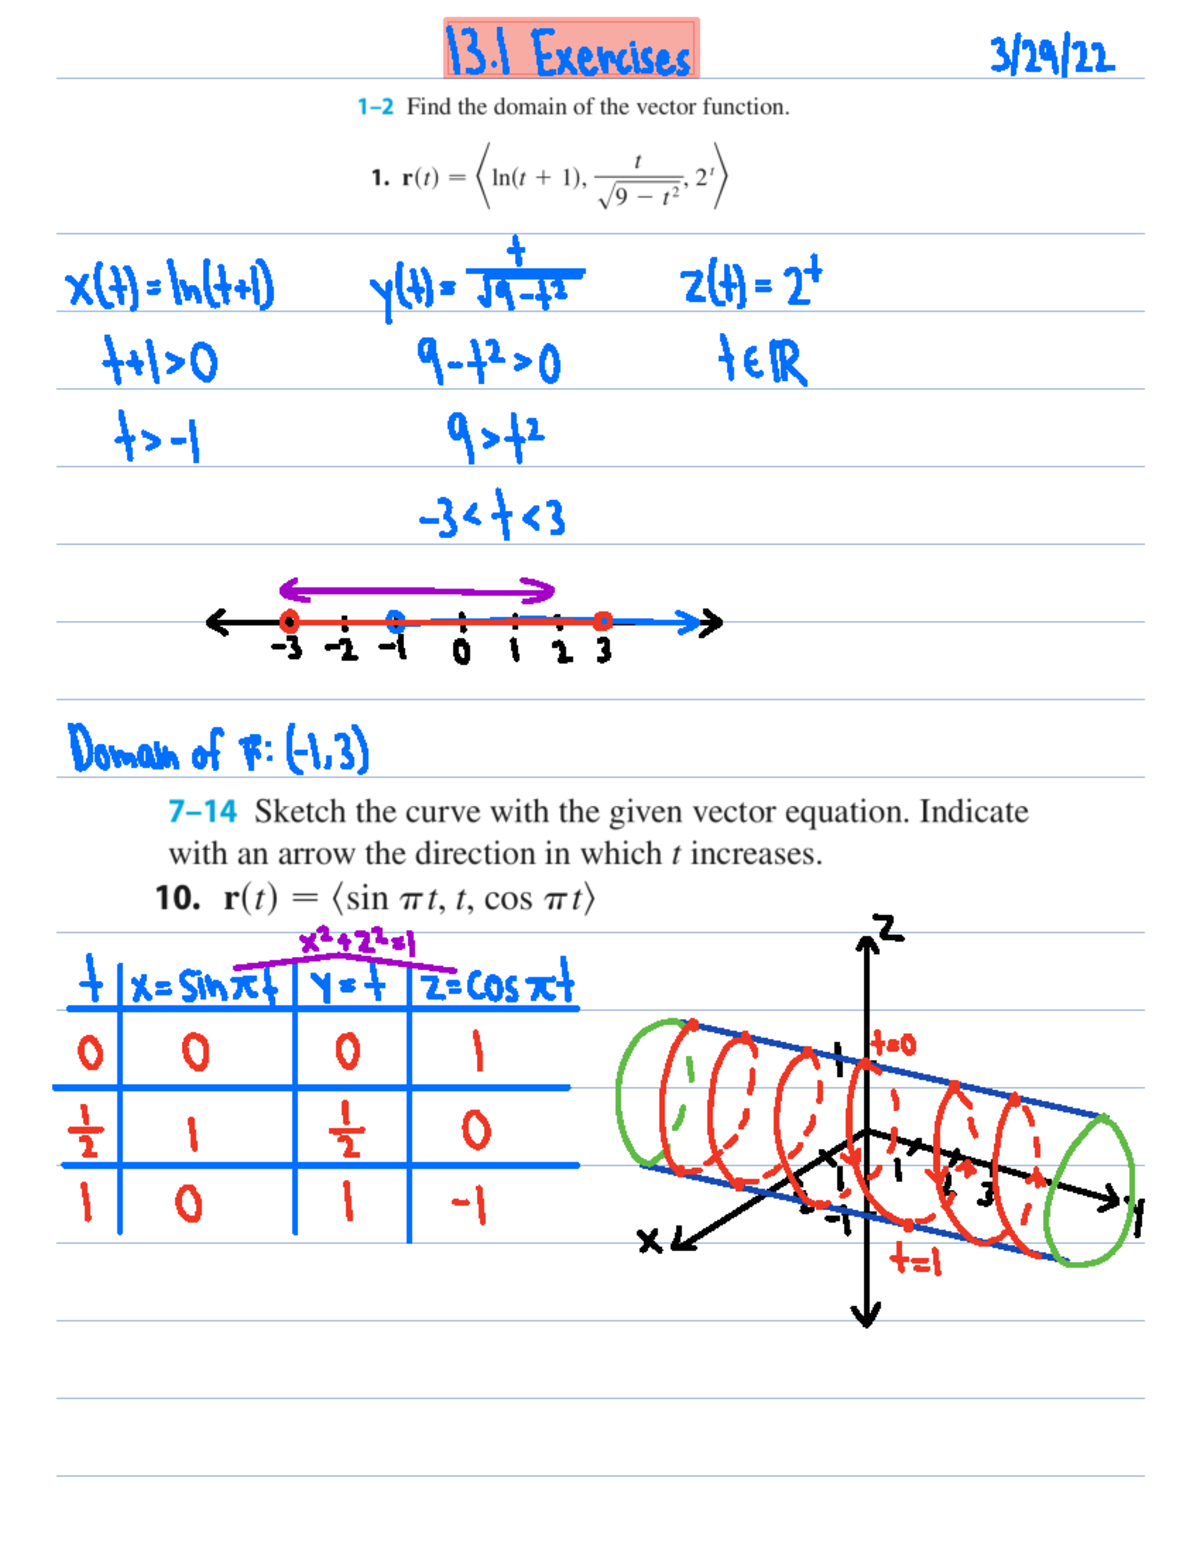 13.1 Exercises
3/29/22
1–2 Find the domain of the vector function.
1. r(t) = ⟨ln(t + 1), t/√(9 − t²), 2ᵗ⟩
x(t) = ln(t+1) y(t) = t/√(9-t²) z(t) = 2ᵗ
t+1>0 9-t²>0 t∈ℝ
t>-1 9>t²
-3<t<3
-3 -2 -1 0 1 2 3
Domain of r: (-1,3)
7–14 Sketch the curve with the given vector equation. Indicate
with an arrow the direction in which t increases.
10. r(t) = ⟨sin πt, t, cos πt⟩
x²+z²=1
t x=sinπt y=t z=cosπt
0 0 0 1
1/2 1 1/2 0
1 0 1 -1
z
1 t=0
1 1 2 3
-1 y
x
t=1